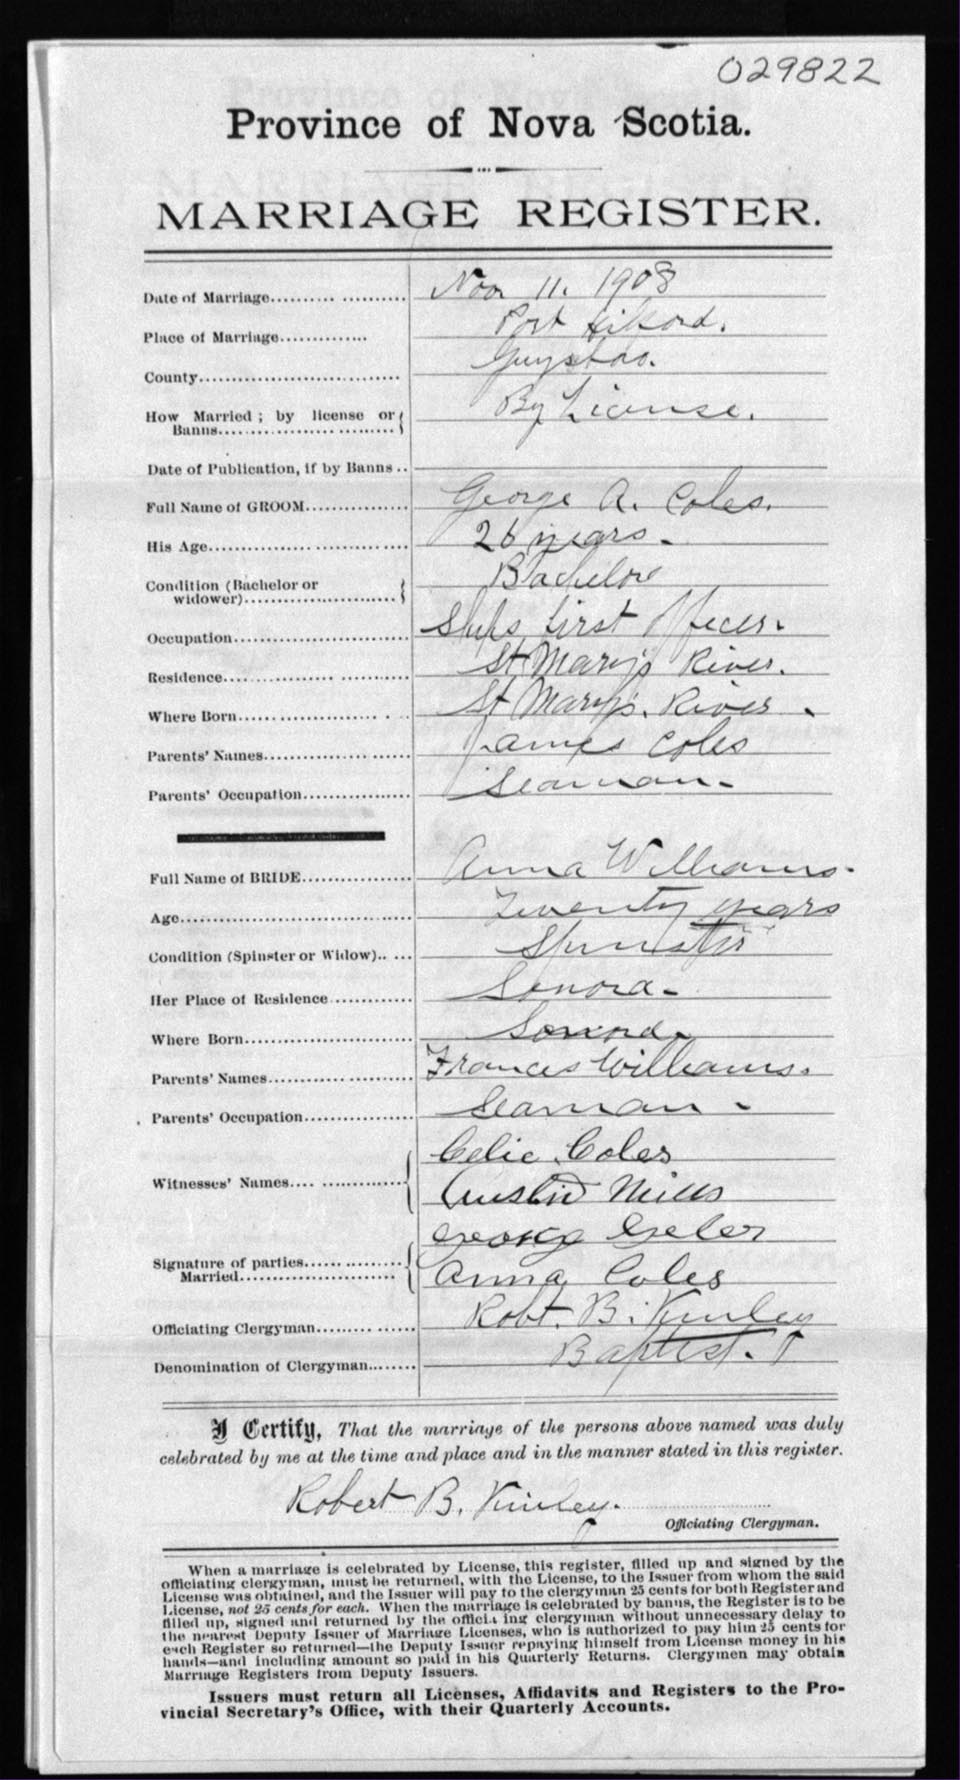 029822
Province of Nova Scotia.
MARRIAGE REGISTER.
Date of Marriage Nov 11. 1908
Place of Marriage Port Hilford.
County Guysboro.
How Married; by license or Banns By License.
Date of Publication, if by Banns
Full Name of GROOM George A. Coles.
His Age 26 years.
Condition (Bachelor or widower) Bachelor
Occupation Ships first Officer.
Residence St Mary's River.
Where Born St Mary's. River.
Parents' Names James Coles
Parents' Occupation Seaman.
Full Name of BRIDE Anna Williams.
Age Twenty years
Condition (Spinster or Widow) Spinster
Her Place of Residence Sonora.
Where Born Sonora.
Parents' Names Frances Williams.
Parents' Occupation Seaman.
Witnesses' Names Celie Coles
Austin Mills
George
Signature of parties Married Anna Coles
Officiating Clergyman Robt. B. Kinley
Denomination of Clergyman Baptist.
I Certify, That the marriage of the persons above named was duly
celebrated by me at the time and place and in the manner stated in this register.
Robert B. Kinley.
Officiating Clergyman.
When a marriage is celebrated by License, this register, filled up and signed by the
officiating clergyman, must be returned, with the License, to the Issuer from whom the said
License was obtained, and the Issuer will pay to the clergyman 25 cents for both Register and
License, not 25 cents for each. When the marriage is celebrated by banns, the Register is to be
filled up, signed and returned by the offici ing clergyman without unnecessary delay to
the nearest Deputy Issuer of Marriage Licenses, who is authorized to pay him 25 cents for
each Register so returned—the Deputy Issuer repaying himself from License money in his
hands—and including amount so paid in his Quarterly Returns. Clergymen may obtain
Marriage Registers from Deputy Issuers.
Issuers must return all Licenses, Affidavits and Registers to the Pro-
vincial Secretary's Office, with their Quarterly Accounts.